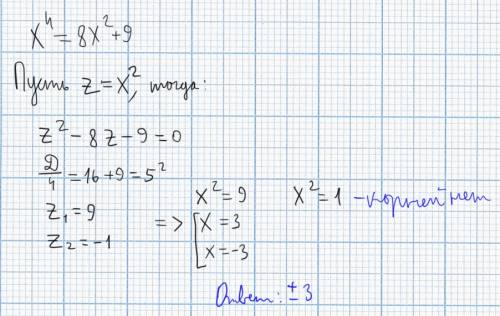 x⁴ = 8x² + 9
Пусть z = x², тогда:
z² − 8z − 9 = 0
Д/4 = 16 + 9 = 5²
z₁ = 9
z₂ = −1
=> x² = 9
[x = 3
x = −3
x² = 1 – корней нет
Ответ: ± 3